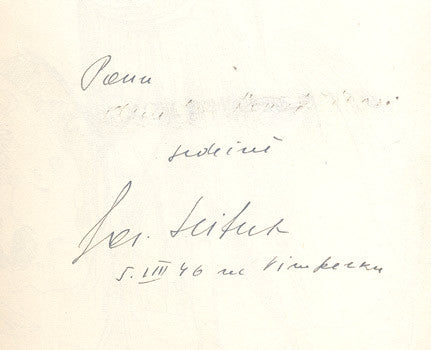 Panu
srdečně
Jar. Seifert
5. VIII 46 ve Vimperku